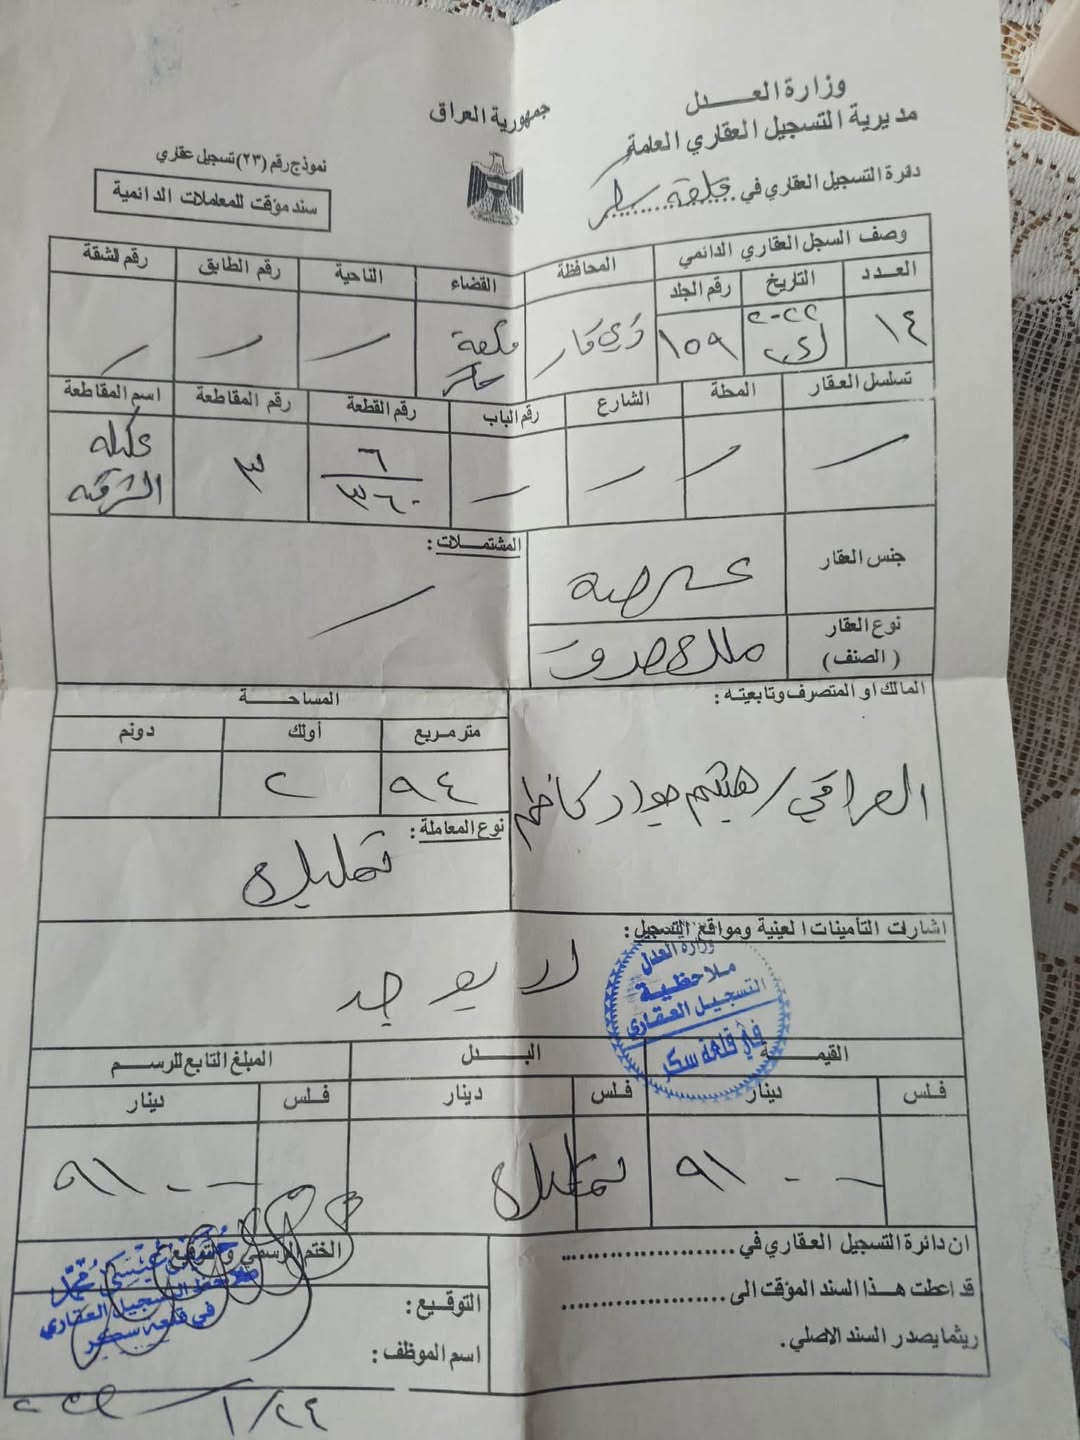 وزارة العدل
مديرية التسجيل العقاري العامة
دائرة التسجيل العقاري في قلعة سكر
جمهورية العراق
نموذج رقم (٢٣) تسجيل عقاري
سند مؤقت للمعاملات الدائمية
وصف السجل العقاري الدائمي
المحافظة القضاء الناحية رقم الطابق رقم الشقة
العدد التاريخ رقم الجلد
١٤ ٢٠٢٢ ١٥٩ ذي قار قلعة سكر
تسلسل العقار المحلة الشارع رقم الباب رقم القطعة رقم المقاطعة اسم المقاطعة
٦
٣٦٠ ٣ الشرقية
جنس العقار عرصة
المشتملات :
نوع العقار
(الصنف) ملك صرف
المالك او المتصرف وتابعيته :
العراقي / هيثم جواد كاظم
المساحة
متر مربع أولك دونم
٩٤ ٢
نوع المعاملة : تمليك
اشارات التأمينات العينية ومواقع التسجيل :
لا يوجد
وزارة العدل
ملاحظية
التسجيل العقاري
في قلعة سكر
القيمة البدل المبلغ التابع للرسم
فلس دينار فلس دينار فلس دينار
٩١٠٠٠ تمليك ٩١٠٠٠
ان دائرة التسجيل العقاري في
قد اعطت هذا السند المؤقت الى
ريثما يصدر السند الاصلي .
الختم الرسمي والتوقيع
التوقيع :
اسم الموظف :
عيسى محمد
التسجيل العقاري
في قلعة سكر